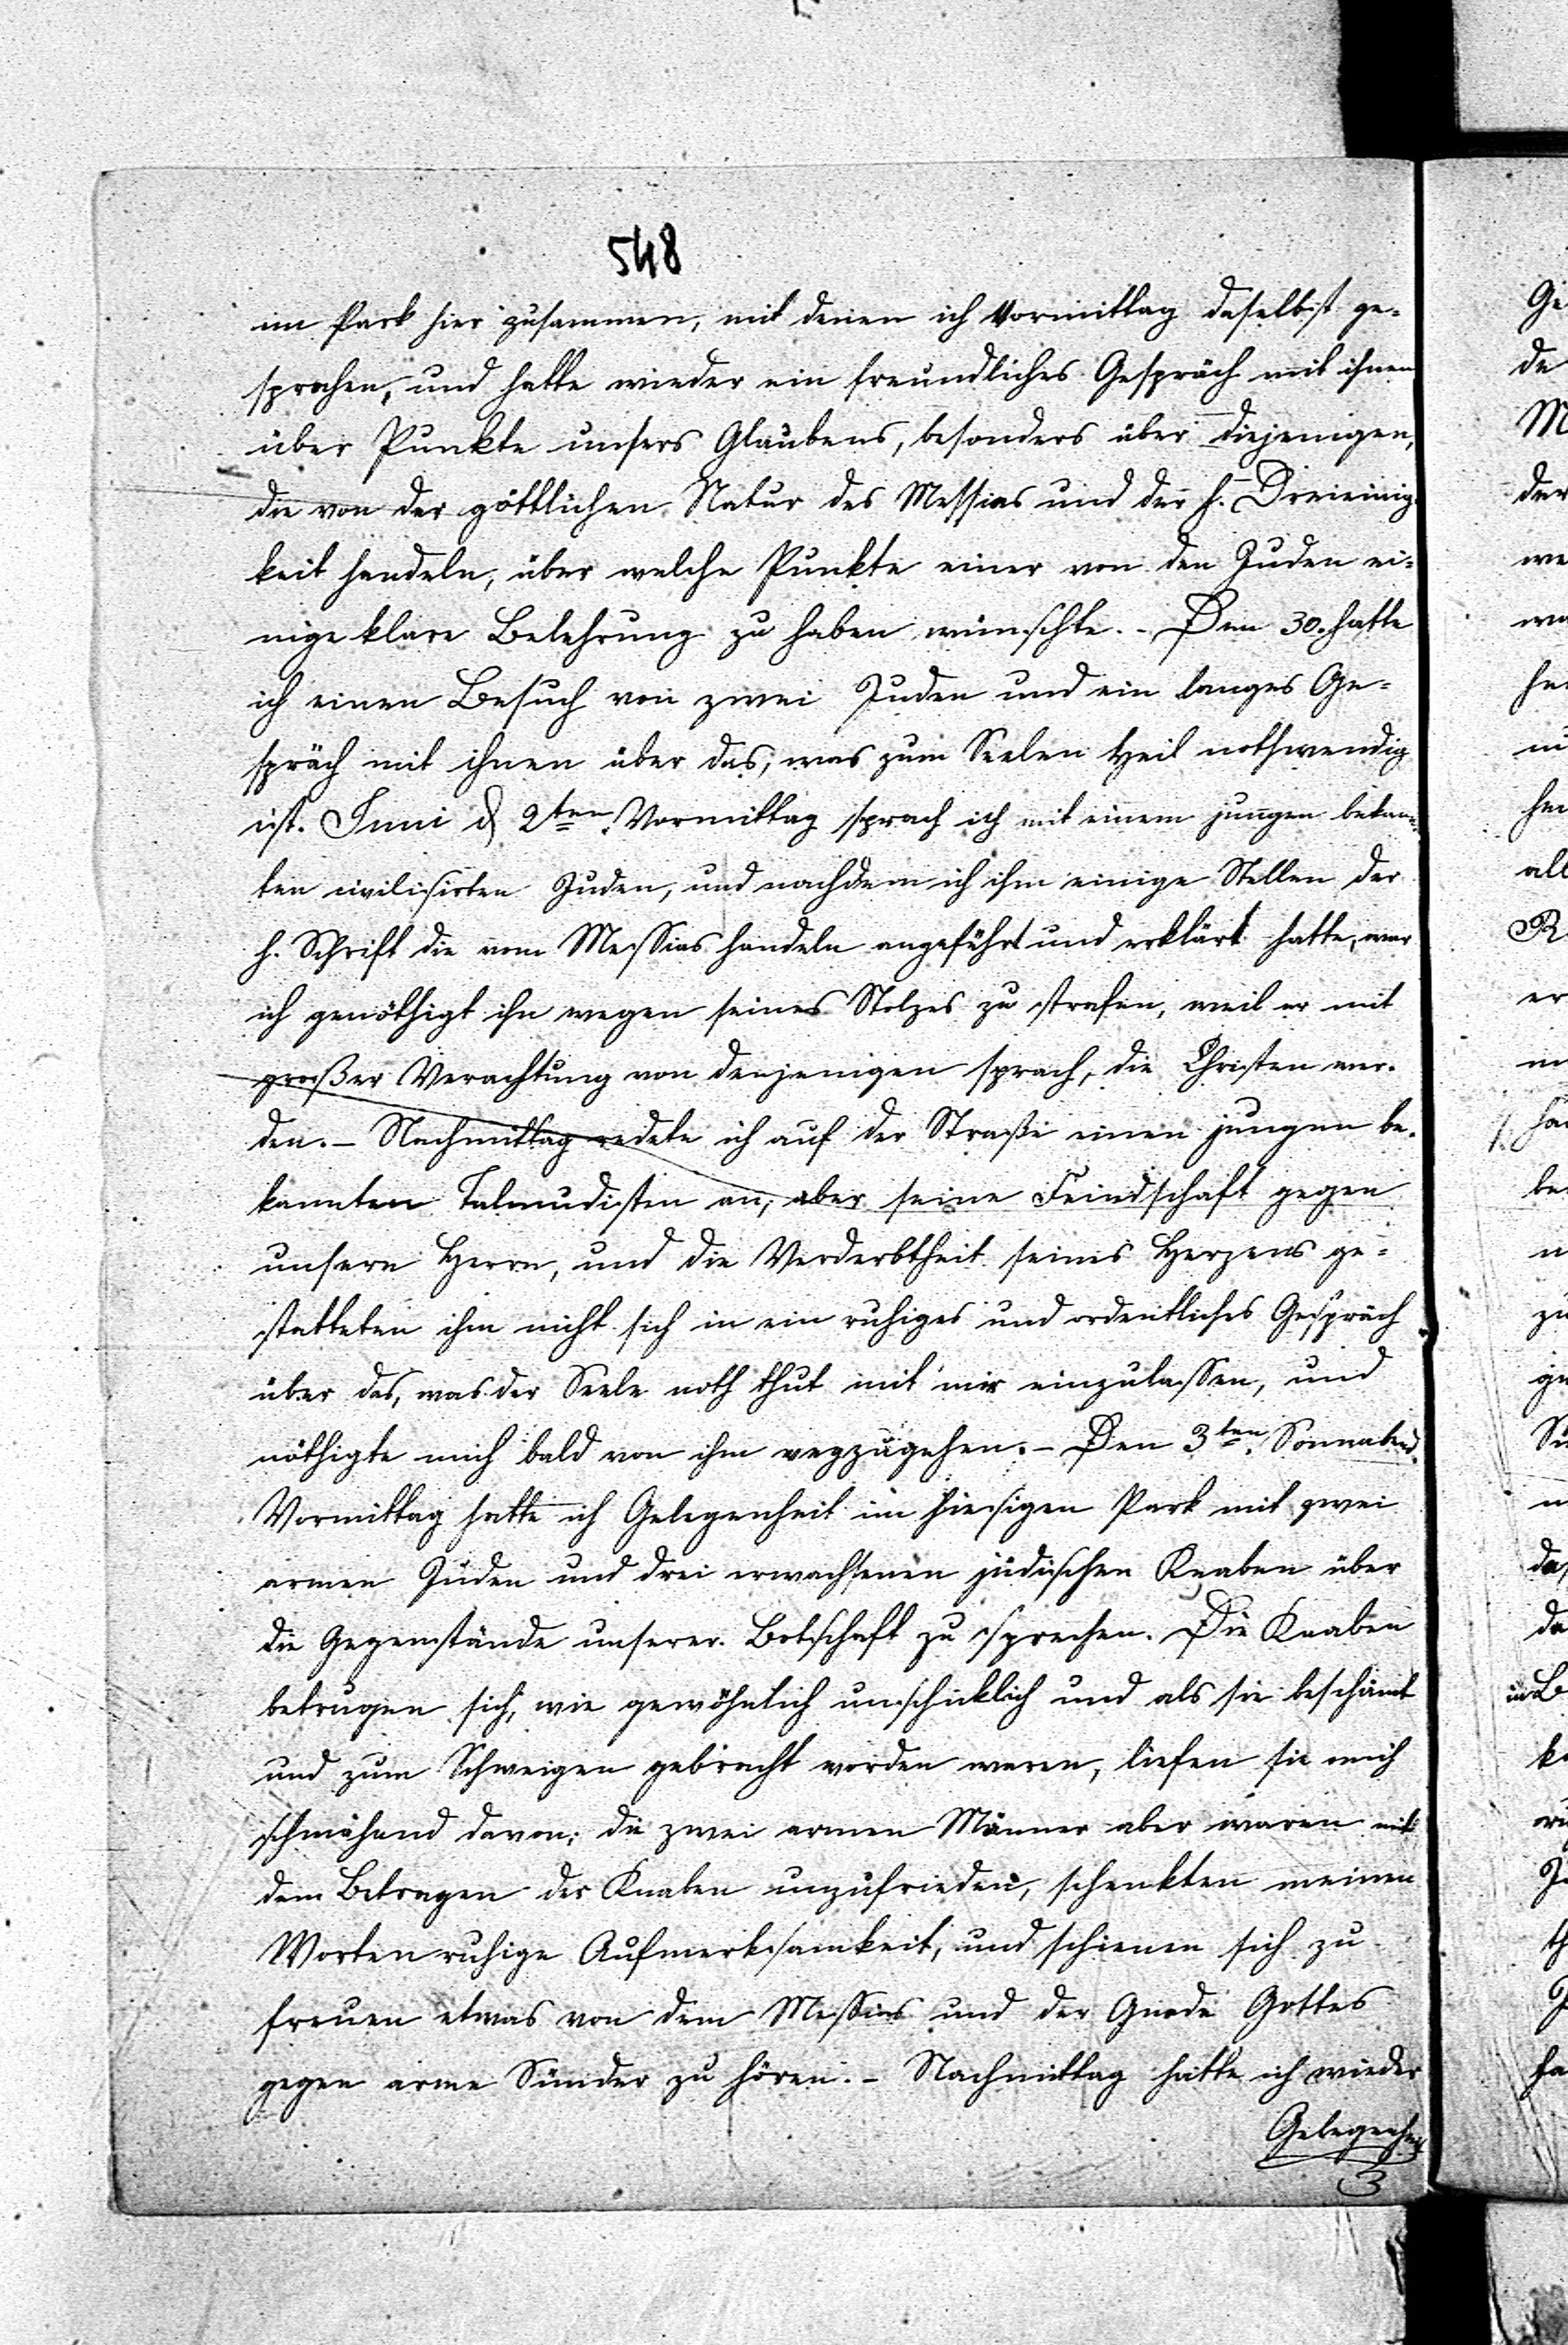 548
im Park hier zusammen, mit denen ich Vormittag daselbst ge-
sprochen, und hatte wieder ein freundliches Gespräch mit ihnen
über Punkte unsers Glaubens, besonders über diejenigen,
die von der göttlichen Natur des Messias und der h. Dreieinig-
keit handeln, über welche Punkte einer von den Juden ei-
nige klare Belehrung zu haben wünschte. - Den 30. hatte
ich einen Besuch von zwei Juden und ein langes Ge-
spräch mit ihnen über das, was zum Seelen Heil nothwendig
ist. Juni d 2ten Vormittag sprach ich mit einem jungen bekan-
ten civilisirten Juden, und nachdem ich ihm einige Stellen der
h. Schrift die vom Messias handeln angeführt und erklärt hatte, war
ich genöthigt ihn wegen seines Stolzes zu strafen, weil er mit
großer Verachtung von denjenigen sprach, die Christen wer-
den. - Nachmittag redete ich auf der Straße einen jungen be-
kannten Talmudisten an, aber seine Feindschaft gegen
unsern Herrn, und die Verderbtheit seines Herzens ge-
statteten ihm nicht sich in ein ruhiges und ordentliches Gespräch
über das, was der Seele noth thut mit mir einzulassen, und
nöthigte mich bald von ihm wegzugehen. - Den 3ten Sonnabend
Vormittag hatte ich Gelegenheit im hiesigen Park mit zwei
armen Juden und drei erwachsenen jüdischen Knaben über
die Gegenstände unserer Botschaft zu sprechen. Die Knaben
betrugen sich, wie gewöhnlich unschicklich und als sie beschämt
und zum Schweigen gebracht worden waren, liefen sie mich
schmähend davon; die zwei armen Männer aber waren mit
dem Betragen der Knaben unzufrieden, schenkten meinen
Worten ruhige Aufmerksamkeit, und schienen sich zu
freuen etwas von dem Messias und der Gnade Gottes
gegen arme Sünder zu hören. - Nachmittag hatte ich wieder
Gelegenheit